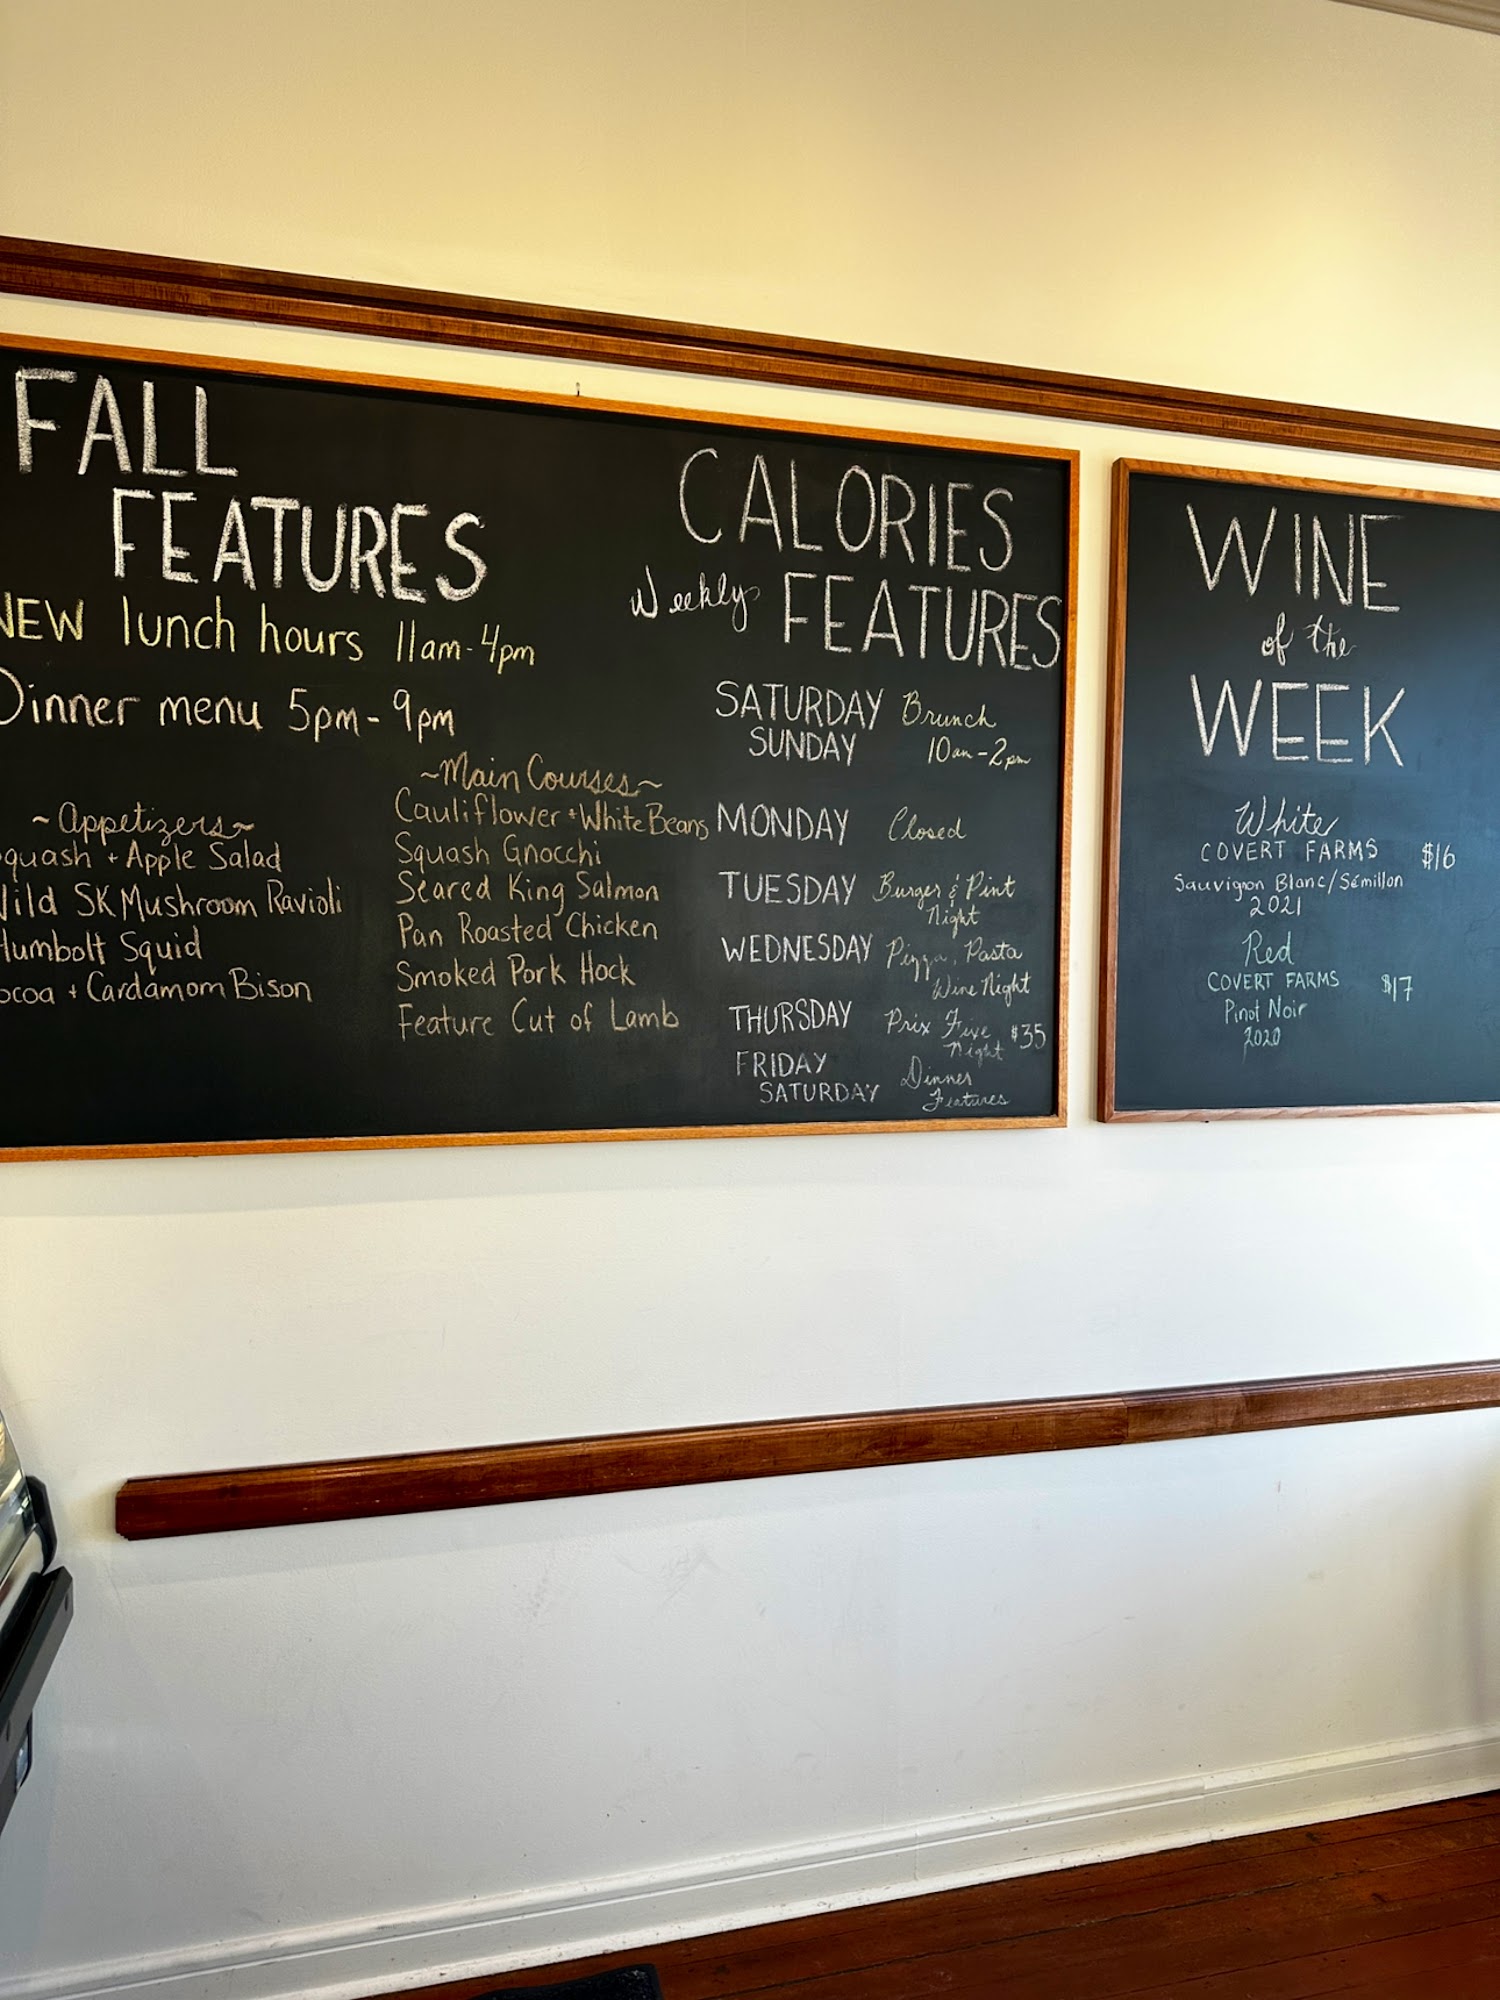 FALL
FEATURES
NEW lunch hours 11am-4pm
Dinner menu 5pm-9pm
~Appetizers~
quash + Apple Salad
Wild SK Mushroom Ravioli
Humbolt Squid
ocoa + Cardamom Bison
~Main Courses~
Cauliflower + White Beans
Squash Gnocchi
Seared King Salmon
Pan Roasted Chicken
Smoked Pork Hock
Feature Cut of Lamb
CALORIES
Weekly FEATURES
SATURDAY Brunch
SUNDAY 10am-2pm
MONDAY Closed
TUESDAY Burger & Pint
Night
WEDNESDAY Pizza, Pasta
Wine Night
THURSDAY Prix Fixe $35
Night
FRIDAY Dinner
SATURDAY Features
WINE
of the
WEEK
White
COVERT FARMS $16
Sauvignon Blanc/Sémillon
2021
Red
COVERT FARMS $17
Pinot Noir
2020